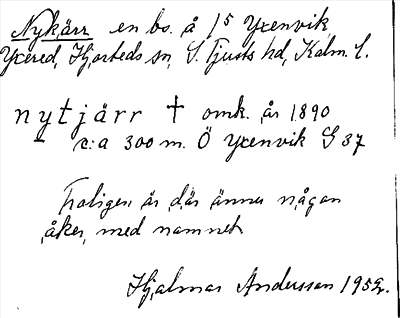 Nykärr en bs. å 1/5 Yxenvik,
Yxered, Hjorteds sn, S. Tjusts hd, Kalm. l.
nytjärr † omk. år 1890
c:a 300 m. Ö Yxenvik G 37
Troligen är där ännu någon
åker, med namnet
Hjalmar Andersson 1952.